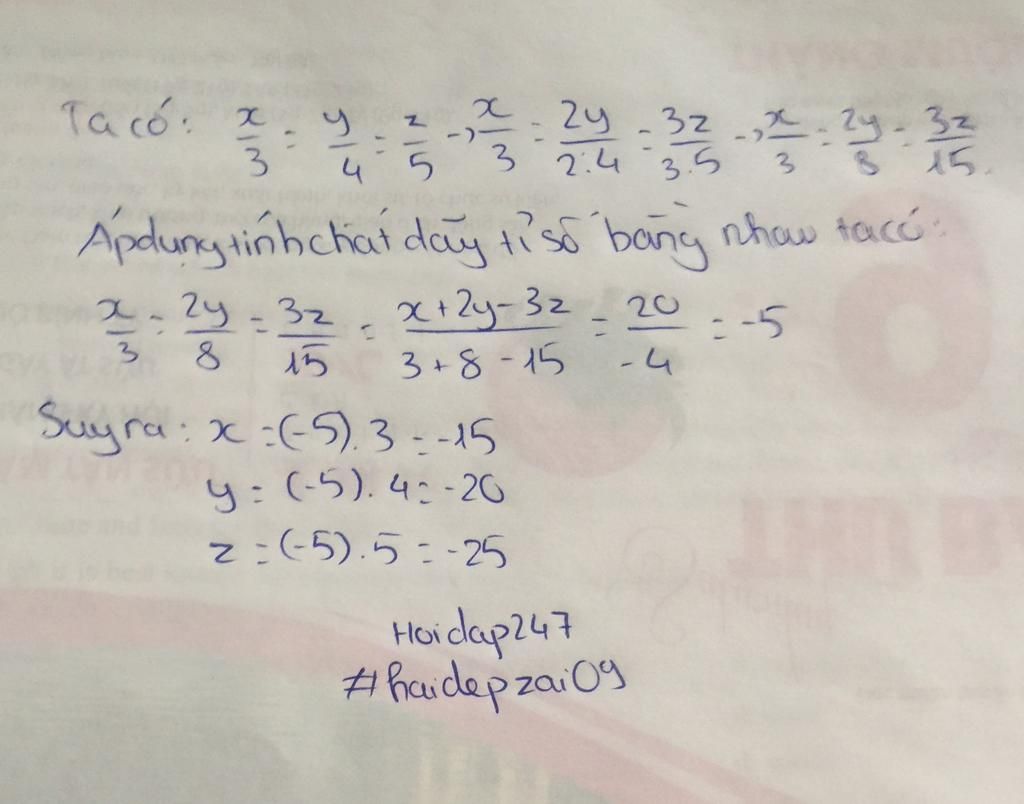 Ta có: x/3 = y/4 = z/5 → x/3 = 2y/2.4 = 3z/3.5 → x/3 = 2y/8 = 3z/15.
Áp dụng tính chất dãy tỉ số bằng nhau ta có:
x/3 = 2y/8 = 3z/15 = x+2y-3z/3+8-15 = 20/-4 = -5
Suy ra: x = (-5).3 = -15
y = (-5).4 = -20
z = (-5).5 = -25
Hoidap247
#haidepzai09